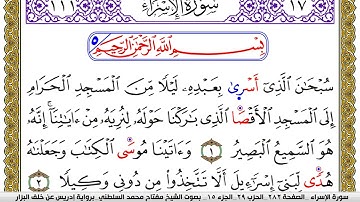 ١١١ سُورَةُ الْإِسْرَاءِ ١٧
٥ بِسْمِ اللَّهِ الرَّحْمَٰنِ الرَّحِيمِ
سُبْحَانَ الَّذِىٓ أَسْرىٰ بِعَبْدِهِۦ لَيْلًا مِّنَ الْمَسْجِدِ الْحَرَامِ
إِلَى الْمَسْجِدِ الْأَقْصَا الَّذِى بَارَكْنَا حَوْلَهُۥ لِنُرِيَهُۥ مِنْ ءَايَاتِنَآ إِنَّهُۥ
هُوَ السَّمِيعُ الْبَصِيرُ ١ وَءَاتَيْنَا مُوسَى الْكِتَابَ وَجَعَلْنَاهُ
هُدًى لِّبَنِىٓ إِسْرَآءِيلَ أَلَّا تَتَّخِذُوا مِن دُونِى وَكِيلًا ٢
سورة الإسراء . الصفحة ٢٨٢ الحزب ٢٩ الجزء ١٥ بصوت الشيخ مفتاح محمد السلطني برواية إدريس عن خلف البزار